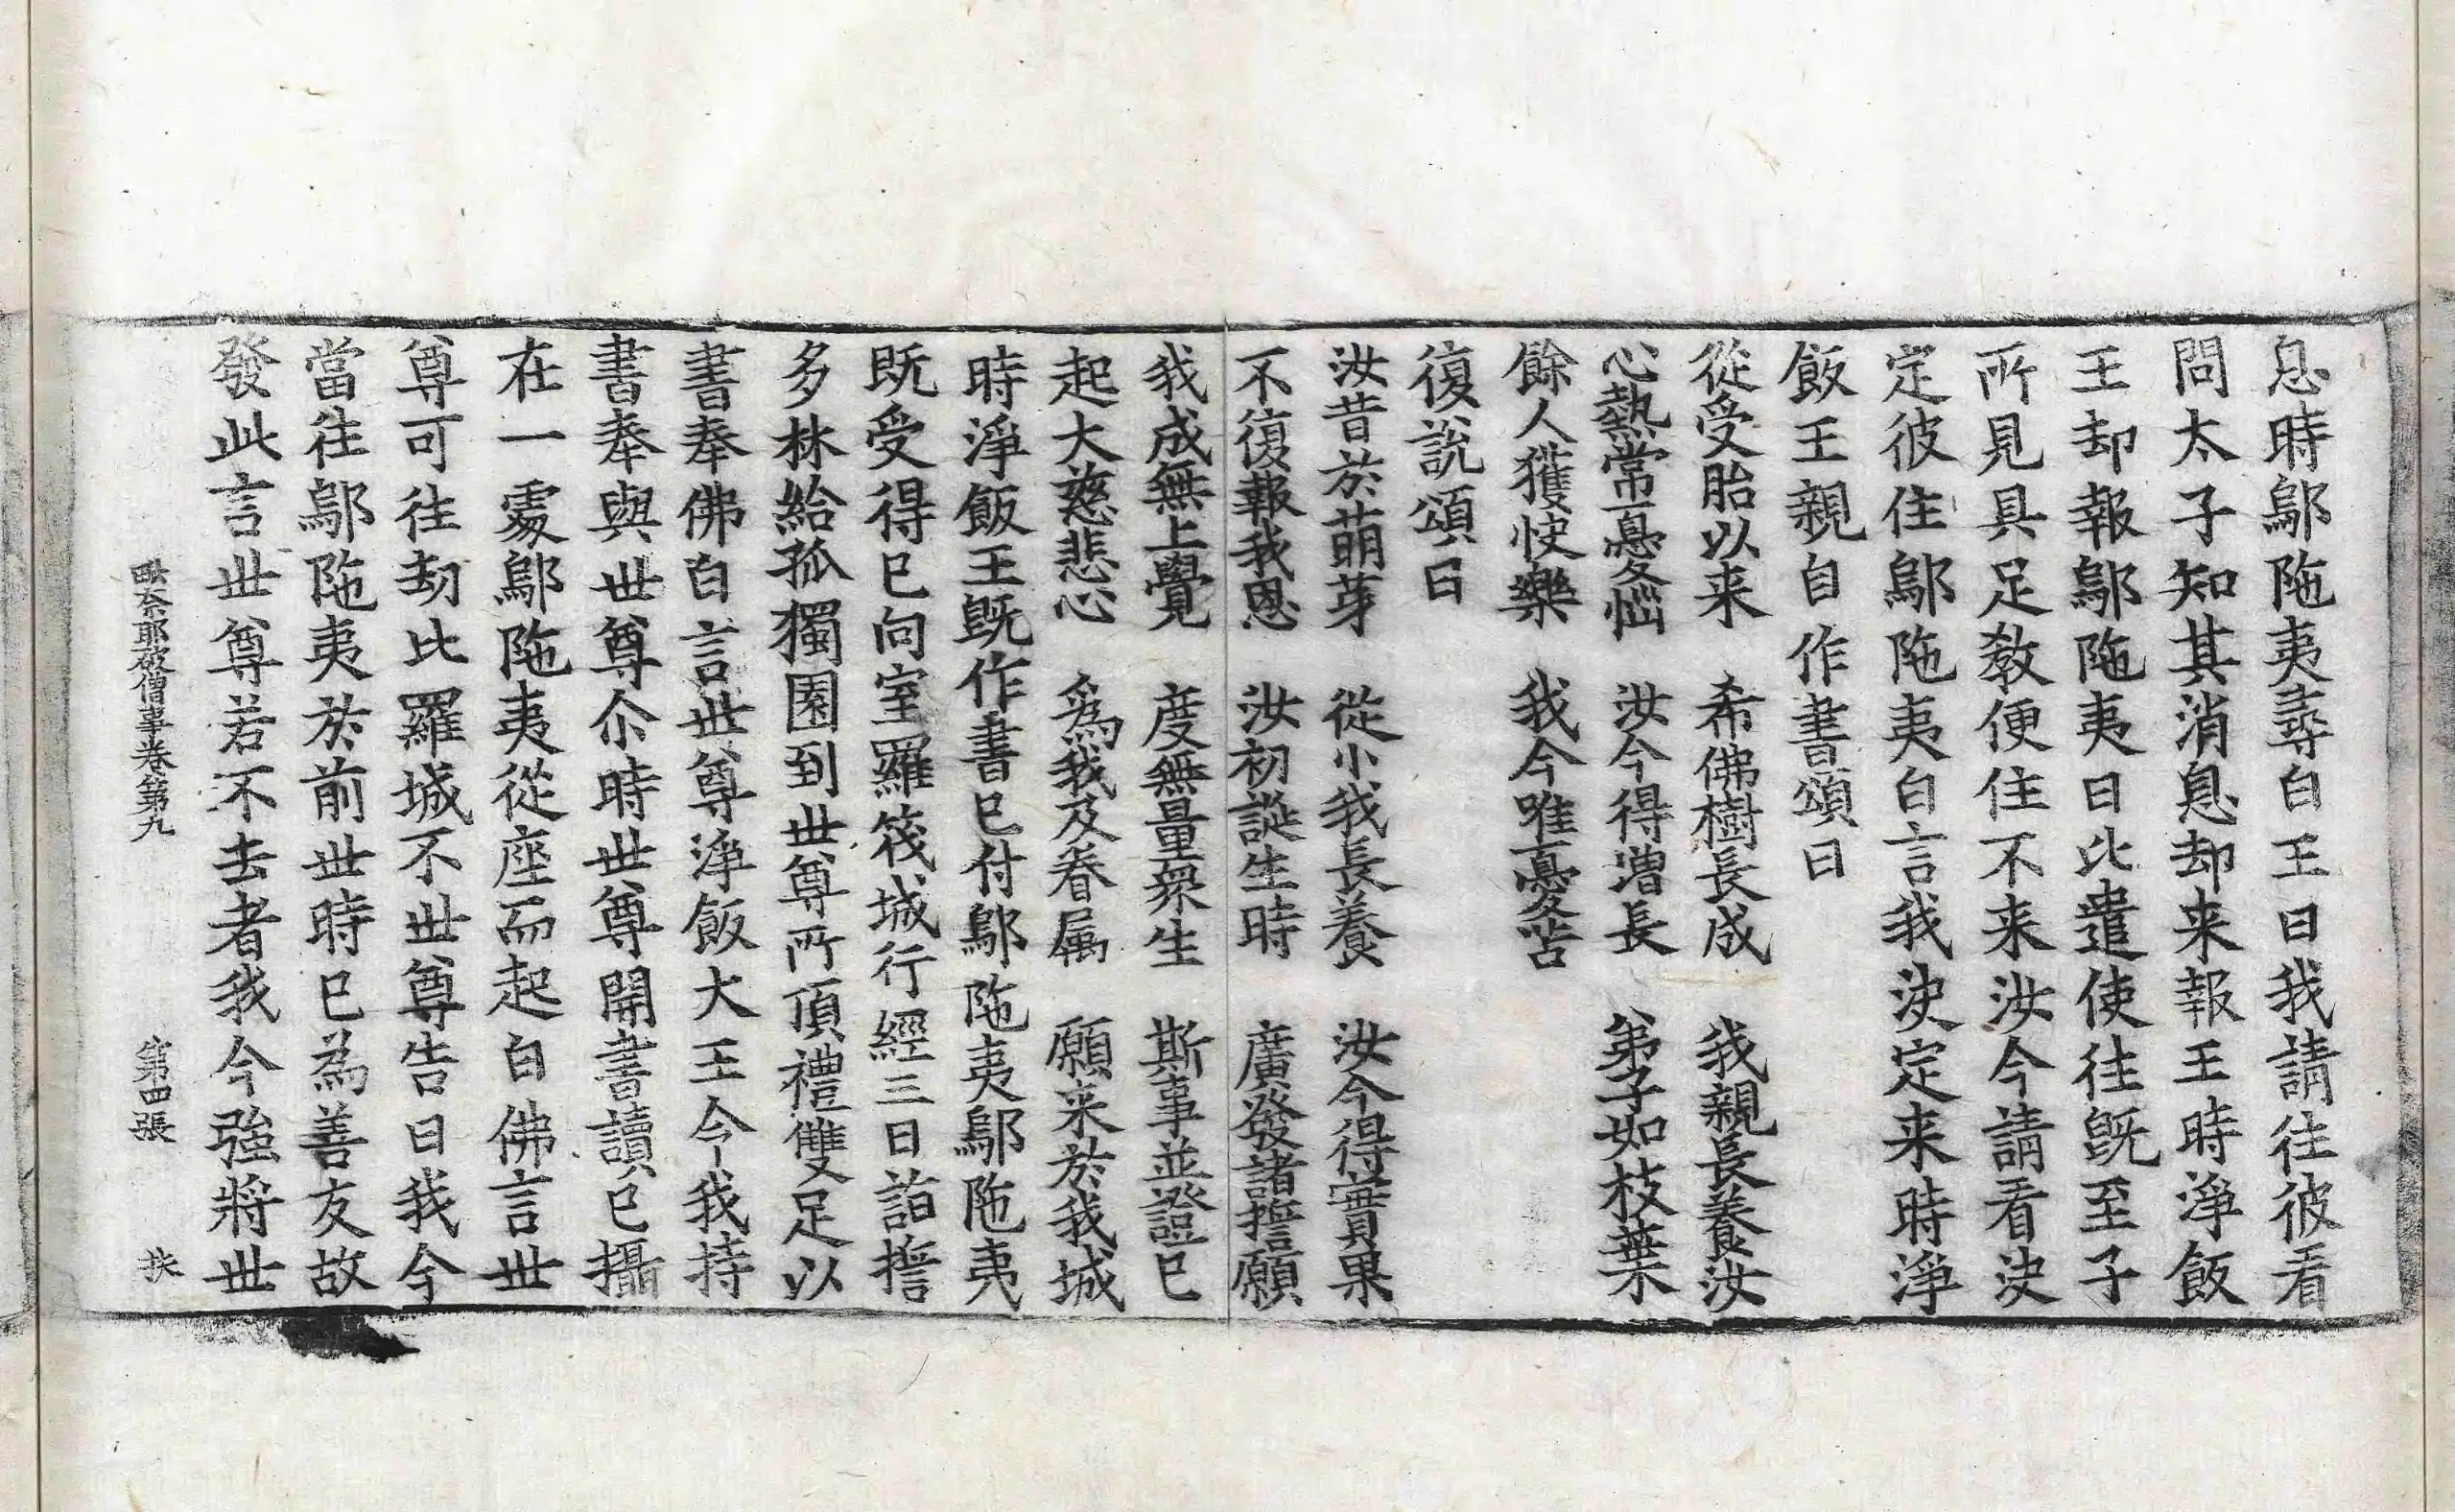 息時鄔陁夷尋白王曰我請往彼看
問太子知其消息却来報王時淨飯
王却報鄔陁夷曰比遣使往旣至子
所見具足教便住不来汝今請看決
定彼住鄔陁夷白言我決定来時淨
飯王親自作書頌曰
從受胎以来　希佛樹長成　我親長養汝
心熱常憂惱　汝今得增長　弟子如枝葉
餘人獲快樂　我今唯憂苦
復說頌曰
汝昔於萌芽　從小我長養　汝今得實果
不復報我恩　汝初誕生時　廣發諸誓願
我成無上覺　度無量衆生　斯事並證已
起大慈悲心　爲我及眷属　願来於我城
時淨飯王旣作書已付鄔陁夷鄔陁夷
旣受得已向室羅筏城行經三日詣誓
多林給孤獨園到世尊所頂禮雙足以
書奉佛白言世尊淨飯大王令我持
書奉與世尊尒時世尊開書讀已攝
在一處鄔陁夷從座而起白佛言世
尊可往劫比羅城不世尊告曰我今
當往鄔陁夷於前世時已為善友故
發此言世尊若不去者我今強將世
毗奈耶破僧事卷第九　第四張　抶